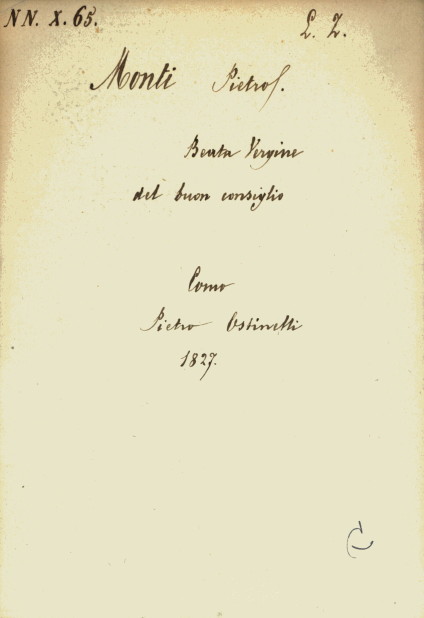 NN. X. 65.
L. Z.
Monti Pietro
Beata Vergine
del buon consiglio
Como
Pietro Ostinelli
1827.